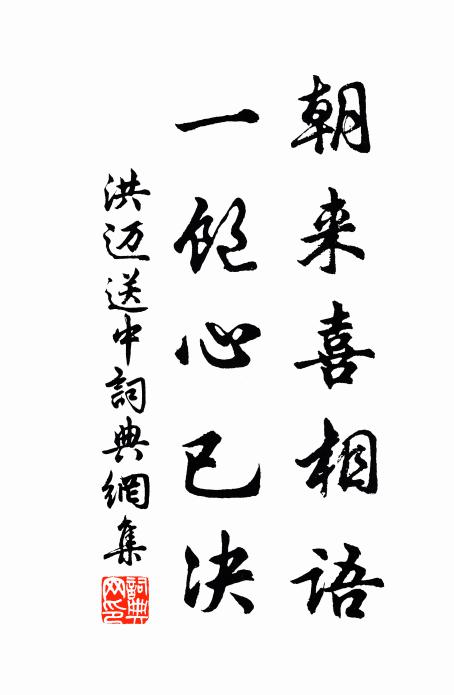 朝来喜相语
一饱心已决
洪迈送中詞典網集
詞典网印